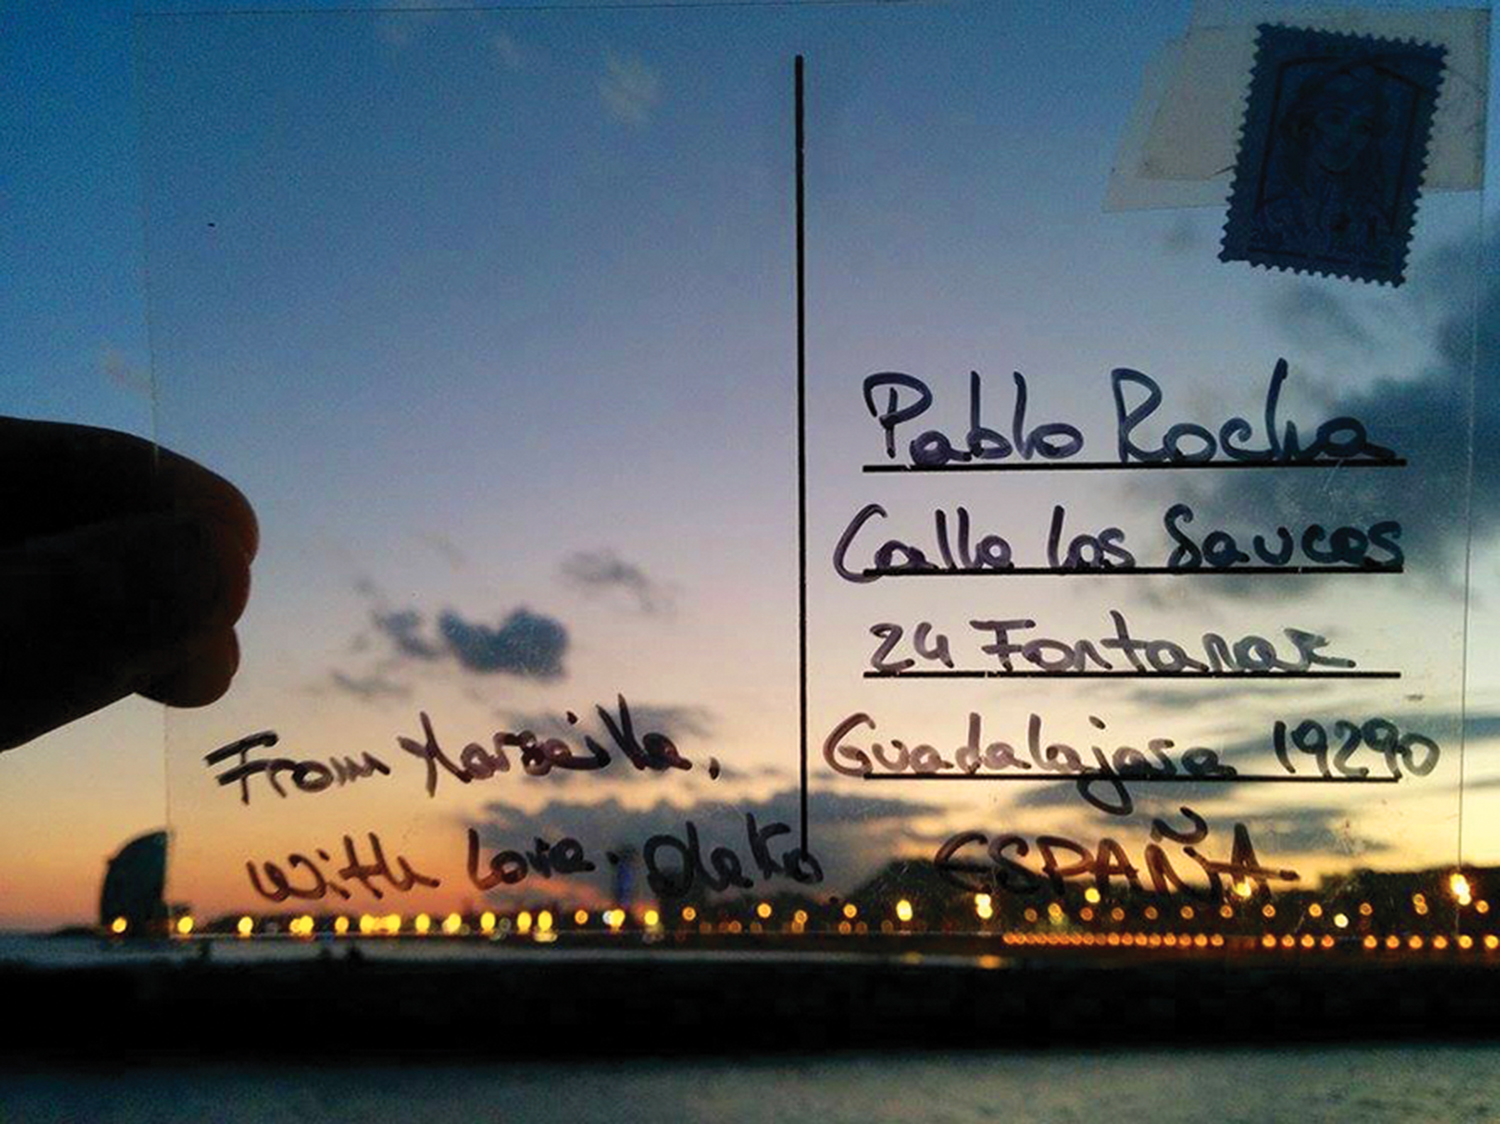 From Marseille,
with Love.
Pablo Rocha
Calle los Sauces
24 Fontanar
Guadalajara 19290
ESPAÑA